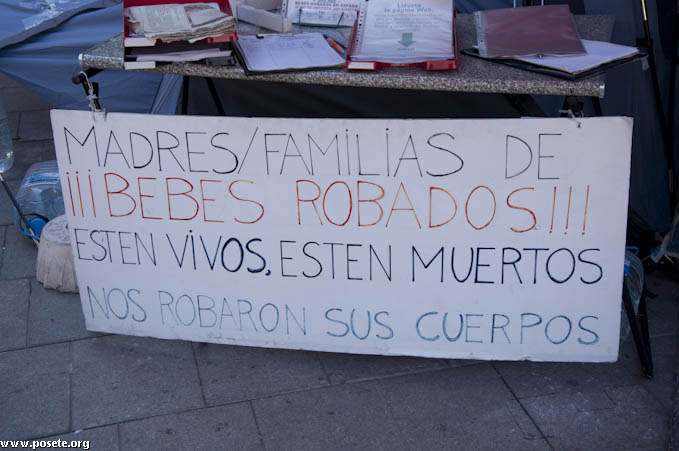 la página Web
MADRES/FAMILIAS DE
¡¡¡BEBES ROBADOS!!!
ESTEN VIVOS, ESTEN MUERTOS
NOS ROBARON SUS CUERPOS
www.posete.org